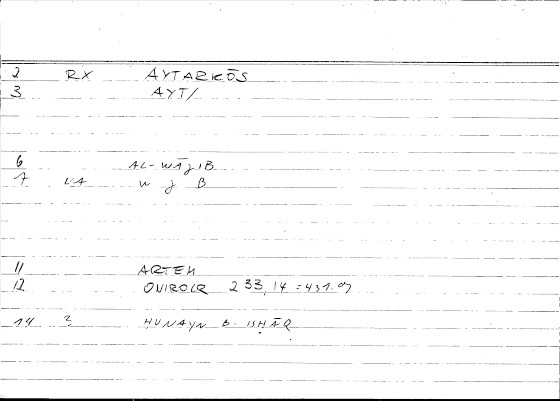 2 RX AYTARKŌS
3 AYT/
6 AL-WĀjIB
7 VA w j B
11 ARTEM
12 ONIROCR 233,14 = 431.07
14 2 HUNAYN B. ISḤĀQ